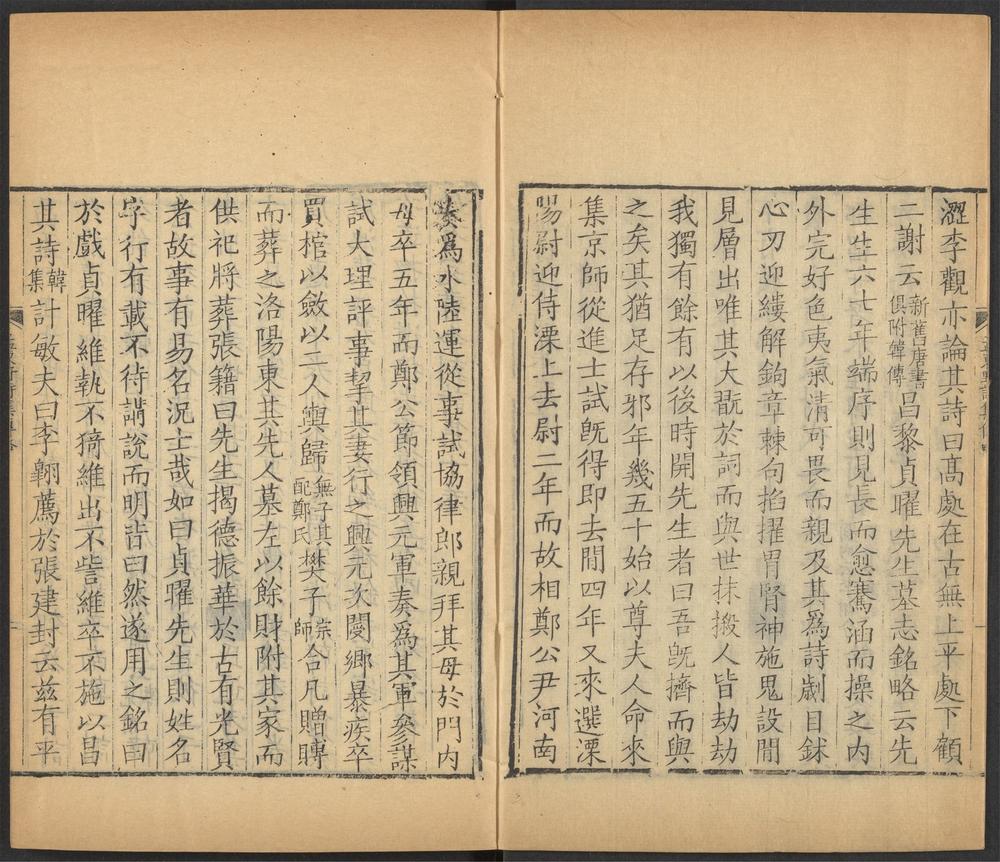 澀李觀亦論其詩曰高處在古無上平處下顧
二謝云新舊唐書俱附韓傳昌黎貞曜先生墓志銘略云先
生生六七年端序則見長而愈騫涵而操之内
外完好色夷氣清可畏而親及其為詩劌目鉥
心刃迎縷解鉤章棘句掐擢胃腎神施鬼設間
見層出唯其大翫於詞而與世抹摋人皆劫劫
我獨有餘有以後時開先生者曰吾既擠而與
之矣其猶足存邪年幾五十始以尊夫人命來
集京師從進士試既得即去間四年又來選溧
陽尉迎侍溧上去尉二年而故相鄭公尹河南
奏爲水陸運從事試協律郎親拜其母於門内
母卒五年而鄭公節領興元軍奏爲其軍參謀
試大理評事挈其妻行之興元次閿鄉暴疾卒
買棺以斂以二人輿歸無子其配鄭氏樊子崇師合凡贈賻
而葬之洛陽東其先人墓左以餘財附其家而
供祀將葬張籍曰先生揭德振華於古有光賢
者故事有易名況士哉如曰貞曜先生則姓名
字行有載不待講説而明皆曰然遂用之銘曰
於戲貞曜維執不猗維出不訾維卒不施以昌
其詩韓集計敏夫曰李翺薦於張建封云兹有平